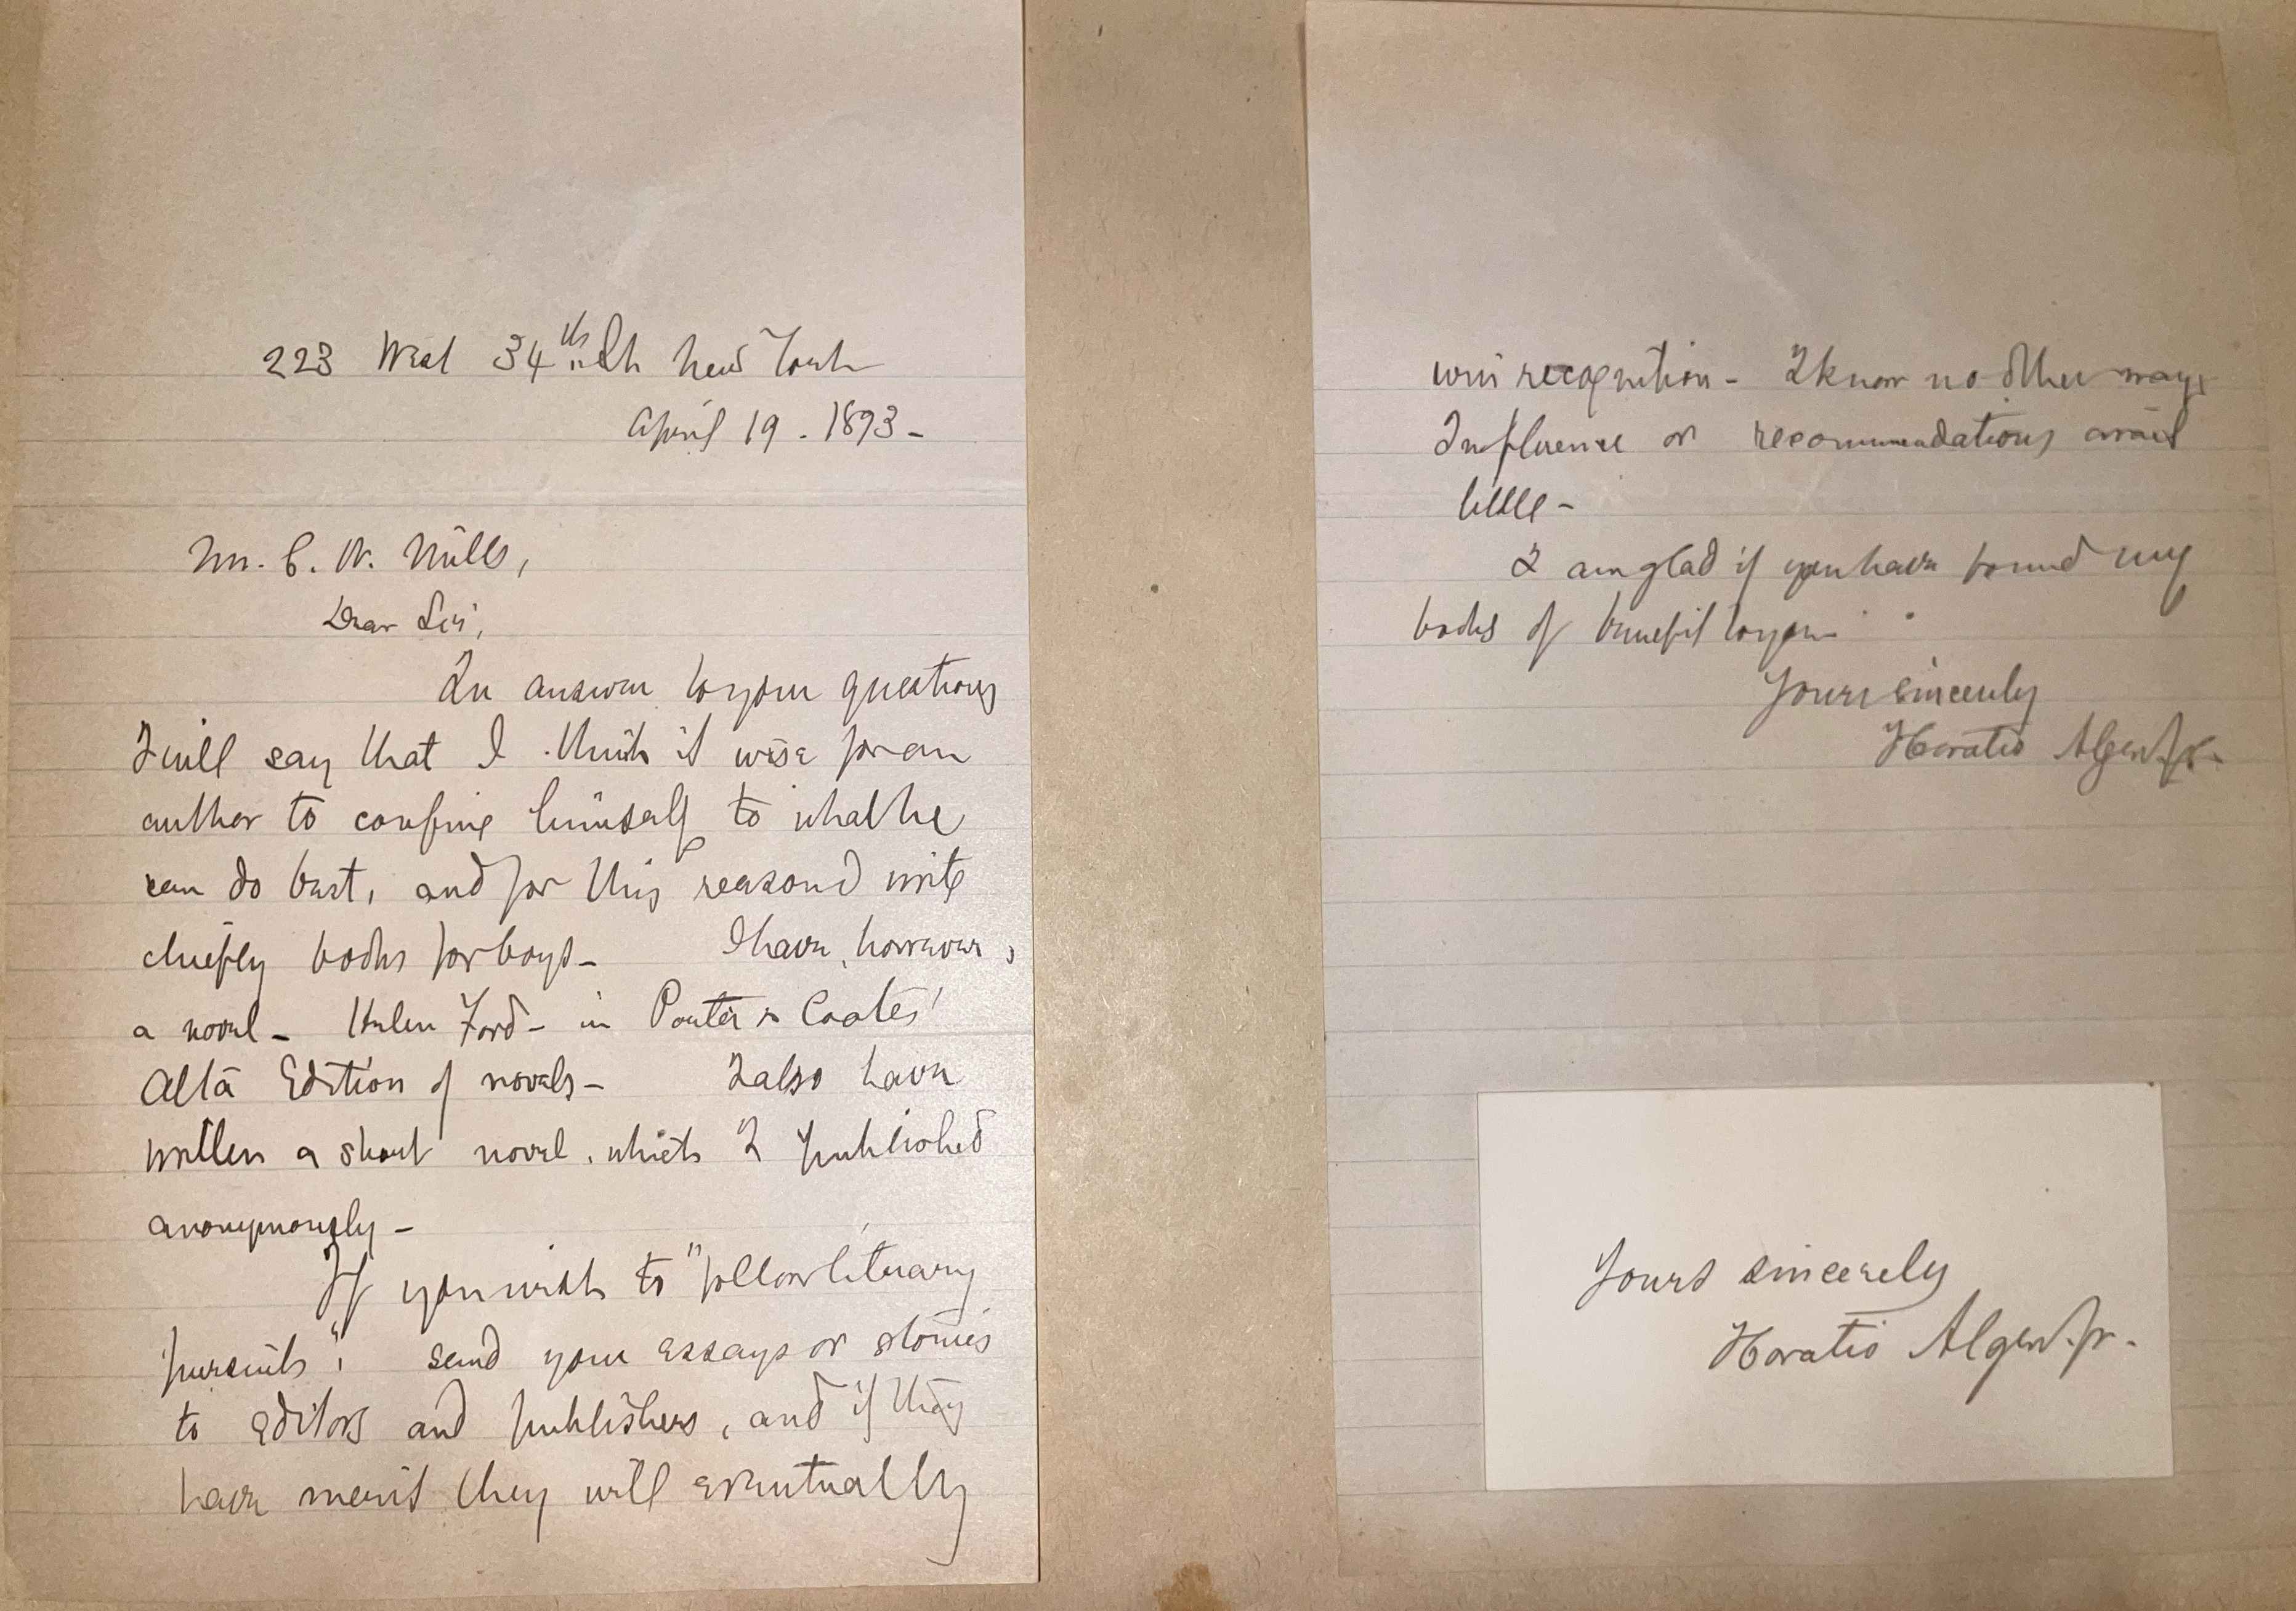 223 West 34th St. New York
April 19 - 1893 -
Mr. C. W. Mills,
Dear Sir,
In answer to your questions
I will say that I think it wise for an
author to confine himself to what he
can do best, and for this reason I write
chiefly books for boys - I have, however,
a novel - Helen Ford - in Porter & Coates'
Alta Edition of novels - I also have
written a short novel, which I published
anonymously -
If you wish to "follow literary
pursuits", send your essays or stories
to editors and publishers, and if they
have merit they will eventually
win recognition - I know no other way.
Influence or recommendations avail
little -
I am glad if you have found my
books of benefit to you -
Yours sincerely
Horatio Alger Jr.
Yours sincerely
Horatio Alger Jr.